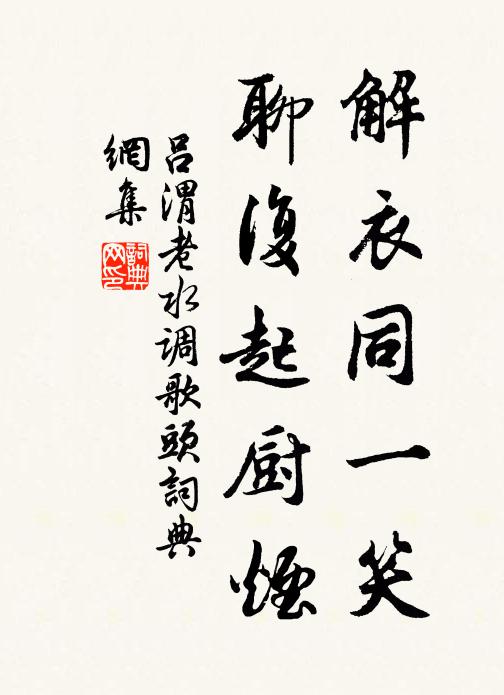 解衣同一笑
聊復起厨煙
吕渭老水调歌頭詞典
網集
詞典网印